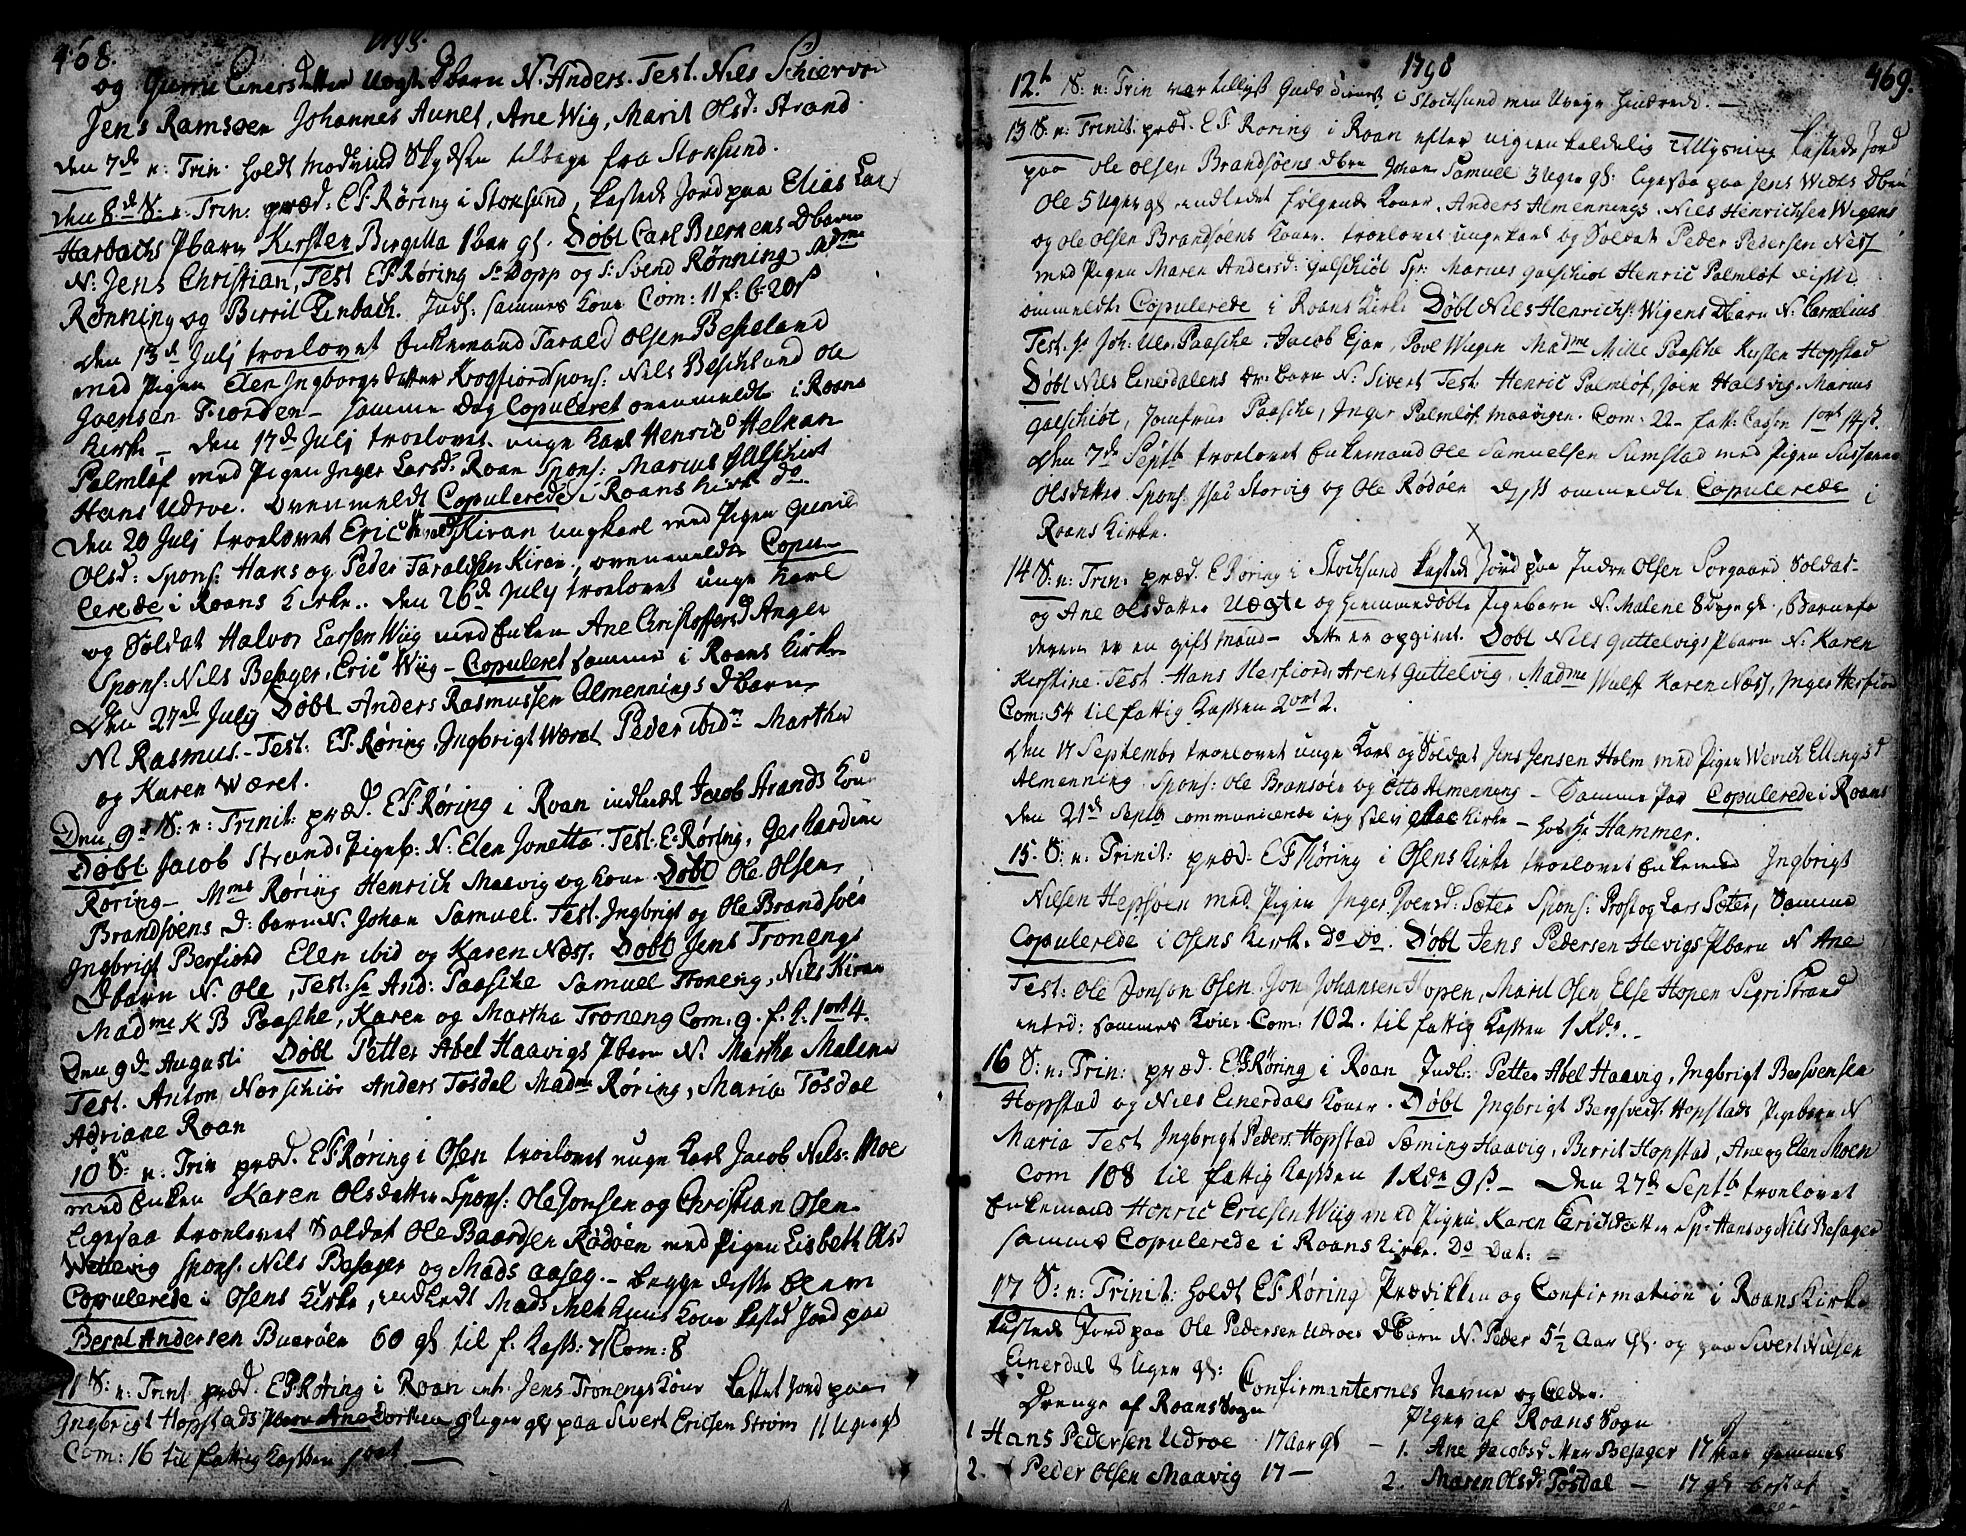 468. 1798.
og Gurru Einersdatter Uægte Dbarn N. Anders. Test. Nils Schiervøe
Jens Ramsøen Johannes Aunet, Ane Wig, Marit Olsd. Strand
Den 7de n: Trin. holdt Modvind Skydsen tilbage fra Stoksund.
Den 8de S. n. Trin: præd. E F Røring i Stoksund, kastede Jord paa Elias Lars
Harbachs Pbarn Kirsten Birgitta 1 Uger gl. Døbt Carl Biernens Dbarn
N. Jens Christian, Test E F Røring Sr Dopp og Sr Svend Rønning Mdme
Rønning og Birrit Einbach. Indl: sammes Kone Com: 11 f: C. 20 s
Den 13de Julj troelovet Enkemand Tarald Olsen Beskeland
med Pigen Elen Ingborgsdatter Krogfiord Spons: Nils Beskeland Ole
Joensen Fiorden - samme Dag Copuleret ovenmeldte i Roans
Kirke - Den 17de Julj troelovet unge Karl Henric Helkan
Palmløf med Pigen Inger Larsd. Roan Spons: Marius Galschiøt
Hans Udroe. Ovenmeldt Copulerede i Roans Kirke do.
Den 20 Julj troelovet Eric Kiran ungkarl med Pigen Gunil
Olsd: Spons: Hans og Peder Taraldsen Kiran, ovenmeldte Copu-
lerede i Roans Kirke. Den 26de July troelovet unge Karl
og Soldat Halvor Larsen Wiig med Enken Ane Christoffersd Anger
Spons: Nils Besager, Eric Wiig - Copuleret samme i Roans Kirke
Den 27de July Døbt Anders Rasmussen Almennings Dbarn
N Rasmus - Test: E F Røring, Ingbrigt Wæret Peder ibidm Martha
og Karen Wæret.
Den 9de S: n: Trinit: præd. E F Røring i Roan indleedt Jacob Strands Kone
Døbt Jacob Strands Pigeb: N: Elen Jonetta. Test. E. Røring, Gerhardine
Røring - Mme Røring Henrich Maavig og Kone. Døbt Ole Olsen
Brandsøens D: barn N. Johan Samuel. Test. Ingbrigt og Ole Brandsøen
Ingbrigt Berfiord Elen ibid og Karen Næss. Døbt Jens Tronengs
Dbarn N. Ole, Test: Sr And: Paasche Samuel Troneng, Nils Kiran
Madme K B Paasche, Karen og Martha Troneng Com: 9. f. l. 1 ort 4.
Den 9de Augusti Døbt Petter Abel Haavigs Pbarn N. Martha Malena
Test. Anton Norschiør Anders Tosdal Madme Røring, Maria Tosdal
Adriane Roan
10 S. n. Trin præd. E F Røring i Osen troelovet unge Karl Jacob Nils: Moe
med Enken Karen Olsdatter Spons: Ole Jonsen og Christian Osen
Ligesaa troelovet Soldat Ole Baardsen Rødøen med Pigen Lisbeth Olsd
Wettevig Spons. Nils Besager og Mads Aaseg. - begge disse blev
Copulerede i Osens Kirke, indledt Mads Kone kasted Jord paa
Bernt Andersen Buerøen 60 gl til f. Kass: 7/ Com: 8
11 S. n: Trint præd. E F Røring i Roan int. Jens Tronengs Kone kasted Jord paa
Ingbrigt Hopstads Pbarn Ane Dorthea 9 Uger gl paa Sivert Ericsen Strøm 11 Uger gl
Com: 16 til fattig Kassen
1798 469.
12te S: n: Trin var tillyst Guds dienst i Stochsund men Uveyr hindrede. -
13 S. n: Trinit: præd. E F Røring i Roan efter nigien lovlig Tillysning kastede Jord
paa Ole Olsen Brandsøens Dbrn Johan Samuel 3 Uger gl: ligesaa paa Jens Wicks Dbrn
Ole 5 Uger gl indledet følgende Koner, Anders Almennings, Nils Henrichsen Wigens
og Ole Olsen Brandsøens Koner. troelovet ungekarl og Soldat Peder Pedersen Næss
med Pigen Maren Andersd: Galschiøt Sp: Marius Galschiøt Henric Palmløf disse
ommeldte Copulerede i Roans Kirke Døbt Nils Henrichs: Wigens Dbarn N. Cornelius
Test. Sr Joh: Ulr. Paasche, Jacob Ejan, Povl Wiigen Madme Mille Paasche Kirsten Hopstad
Døbt Nils Einerdalens Dr. barn N: Sivert Test. Henric Palmløf, Joen Halsvig. Marius
Galschiøt, Jomfrue Paasche, Inger Palmløf Maavigen. Com: 22 - fatt: Cassen 1 ort 14 s.
Den 7de Septb troelovet Enkemand Ole Samuelsen Sumstad med Pigen Susanna
Olsdatter Spons: Isac Storvig og Ole Rødøen disse ommeldte Copulerede i
Roans Kirke.
14 S: n: Trin: præd. E Røring i Stochsund kastede Jord paa Indre Olsen Sorgaard Soldat-
og Ane Olsdatter Uægte og hiemmedøbte Pigebarn N. Malene 8 Dage gl., Barnefa
deren er en gift Mand - dette er opgivet. Døbt Nils Guttelvigs Pbarn N. Karen
Kirstine. Test. Hans Herfiord, Arent Guttelvig, Madme Wulff Karen Næss, Inger Herfiord
Com: 54 til fattig Kassen 2 ort 2.
Den 17 Septembr troelovet unge Karl og Soldat Jens Jensen Holm med Pigen Werich Ellingsd
Almenning. Spons: Ole Bransøen og Otto Almenning - Samme Par Copulerede i Roans
Den 21de Septb communicerede ieg selv Kirke - hos Hr Hammer.
15. S: n: Trinit: præd. E F Røring i Osens Kirke troelovet Enkemand Ingbrigt
Nilsen Hepsøen med Pigen Inger Svensd: Sæter Spons: Prost og Lars Sæter, Samme
Copulerede i Osens Kirke Do Do. Døbt Jens Pedersen Hevigs Pbarn N Ane
Test: Ole Jonson Osen, Jon Johansen Hopen, Marit Osen, Else Hopen Sigri Strand
introd: sammes Kone. Com: 102. til fattig Kassen 1 Rdr. -
16 S: n: Trin: præd. E F Røring i Roan Indl: Petter Abel Haavig, Ingbrigt Bersvensen
Hopstad og Nils Einerdals Koner. Døbt Ingbrigt Bergsvends. Hopstads Pigebarn N
Maria Test Ingbrigt Peders. Hopstad Sæming Haavig, Birrit Hopstad, Ane og Elen Moen
Com 108 til fattig Kassen 1 Rdr 9 s. - Den 27de Septb troelovet
Enkemand Henric Ericsen Wiig med Pigen Karen Erichdatter Sp: Hans og Nils Besager
samme Copulerede i Roans Kirke. Do Dat: -
17 S: n: Trinit: holdt E F Røring Prædikken og Confirmation i Roans Kirke
kastede Jord paa Ole Pedersen Udroes Dbarn N. Peder 5½ Aar gl. og paa Sivert Nilsen
Einerdal 8 Uger gl: Confirmanternes Navne og Alder.
Drenge af Roans Sogn Piger af Roans Sogn
1 Hans Pedersen Udroe 17 Aar gl - 1. Ane Jacobsdatter Besager 17 Aar gammel
2. Peder Olsen Maavig 17 - 2. Maren Olsd. Tosdal - 17 gl